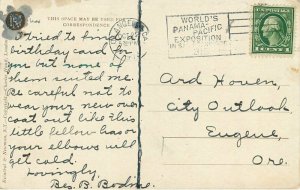 THIS SPACE MAY BE USED FOR
CORRESPONDENCE
I tried to find a
birthday card for
you but none of
them suited me.
Be careful not to
wear your new over
coat out like this
little fellow has or
your elbows will
get cold.
Lovingly,
Bes. B. Bodine.
WORLD'S
PANAMA-PACIFIC
EXPOSITION
IN S
CENT
Ard Hoven,
City Outlook
Eugene,
Ore.